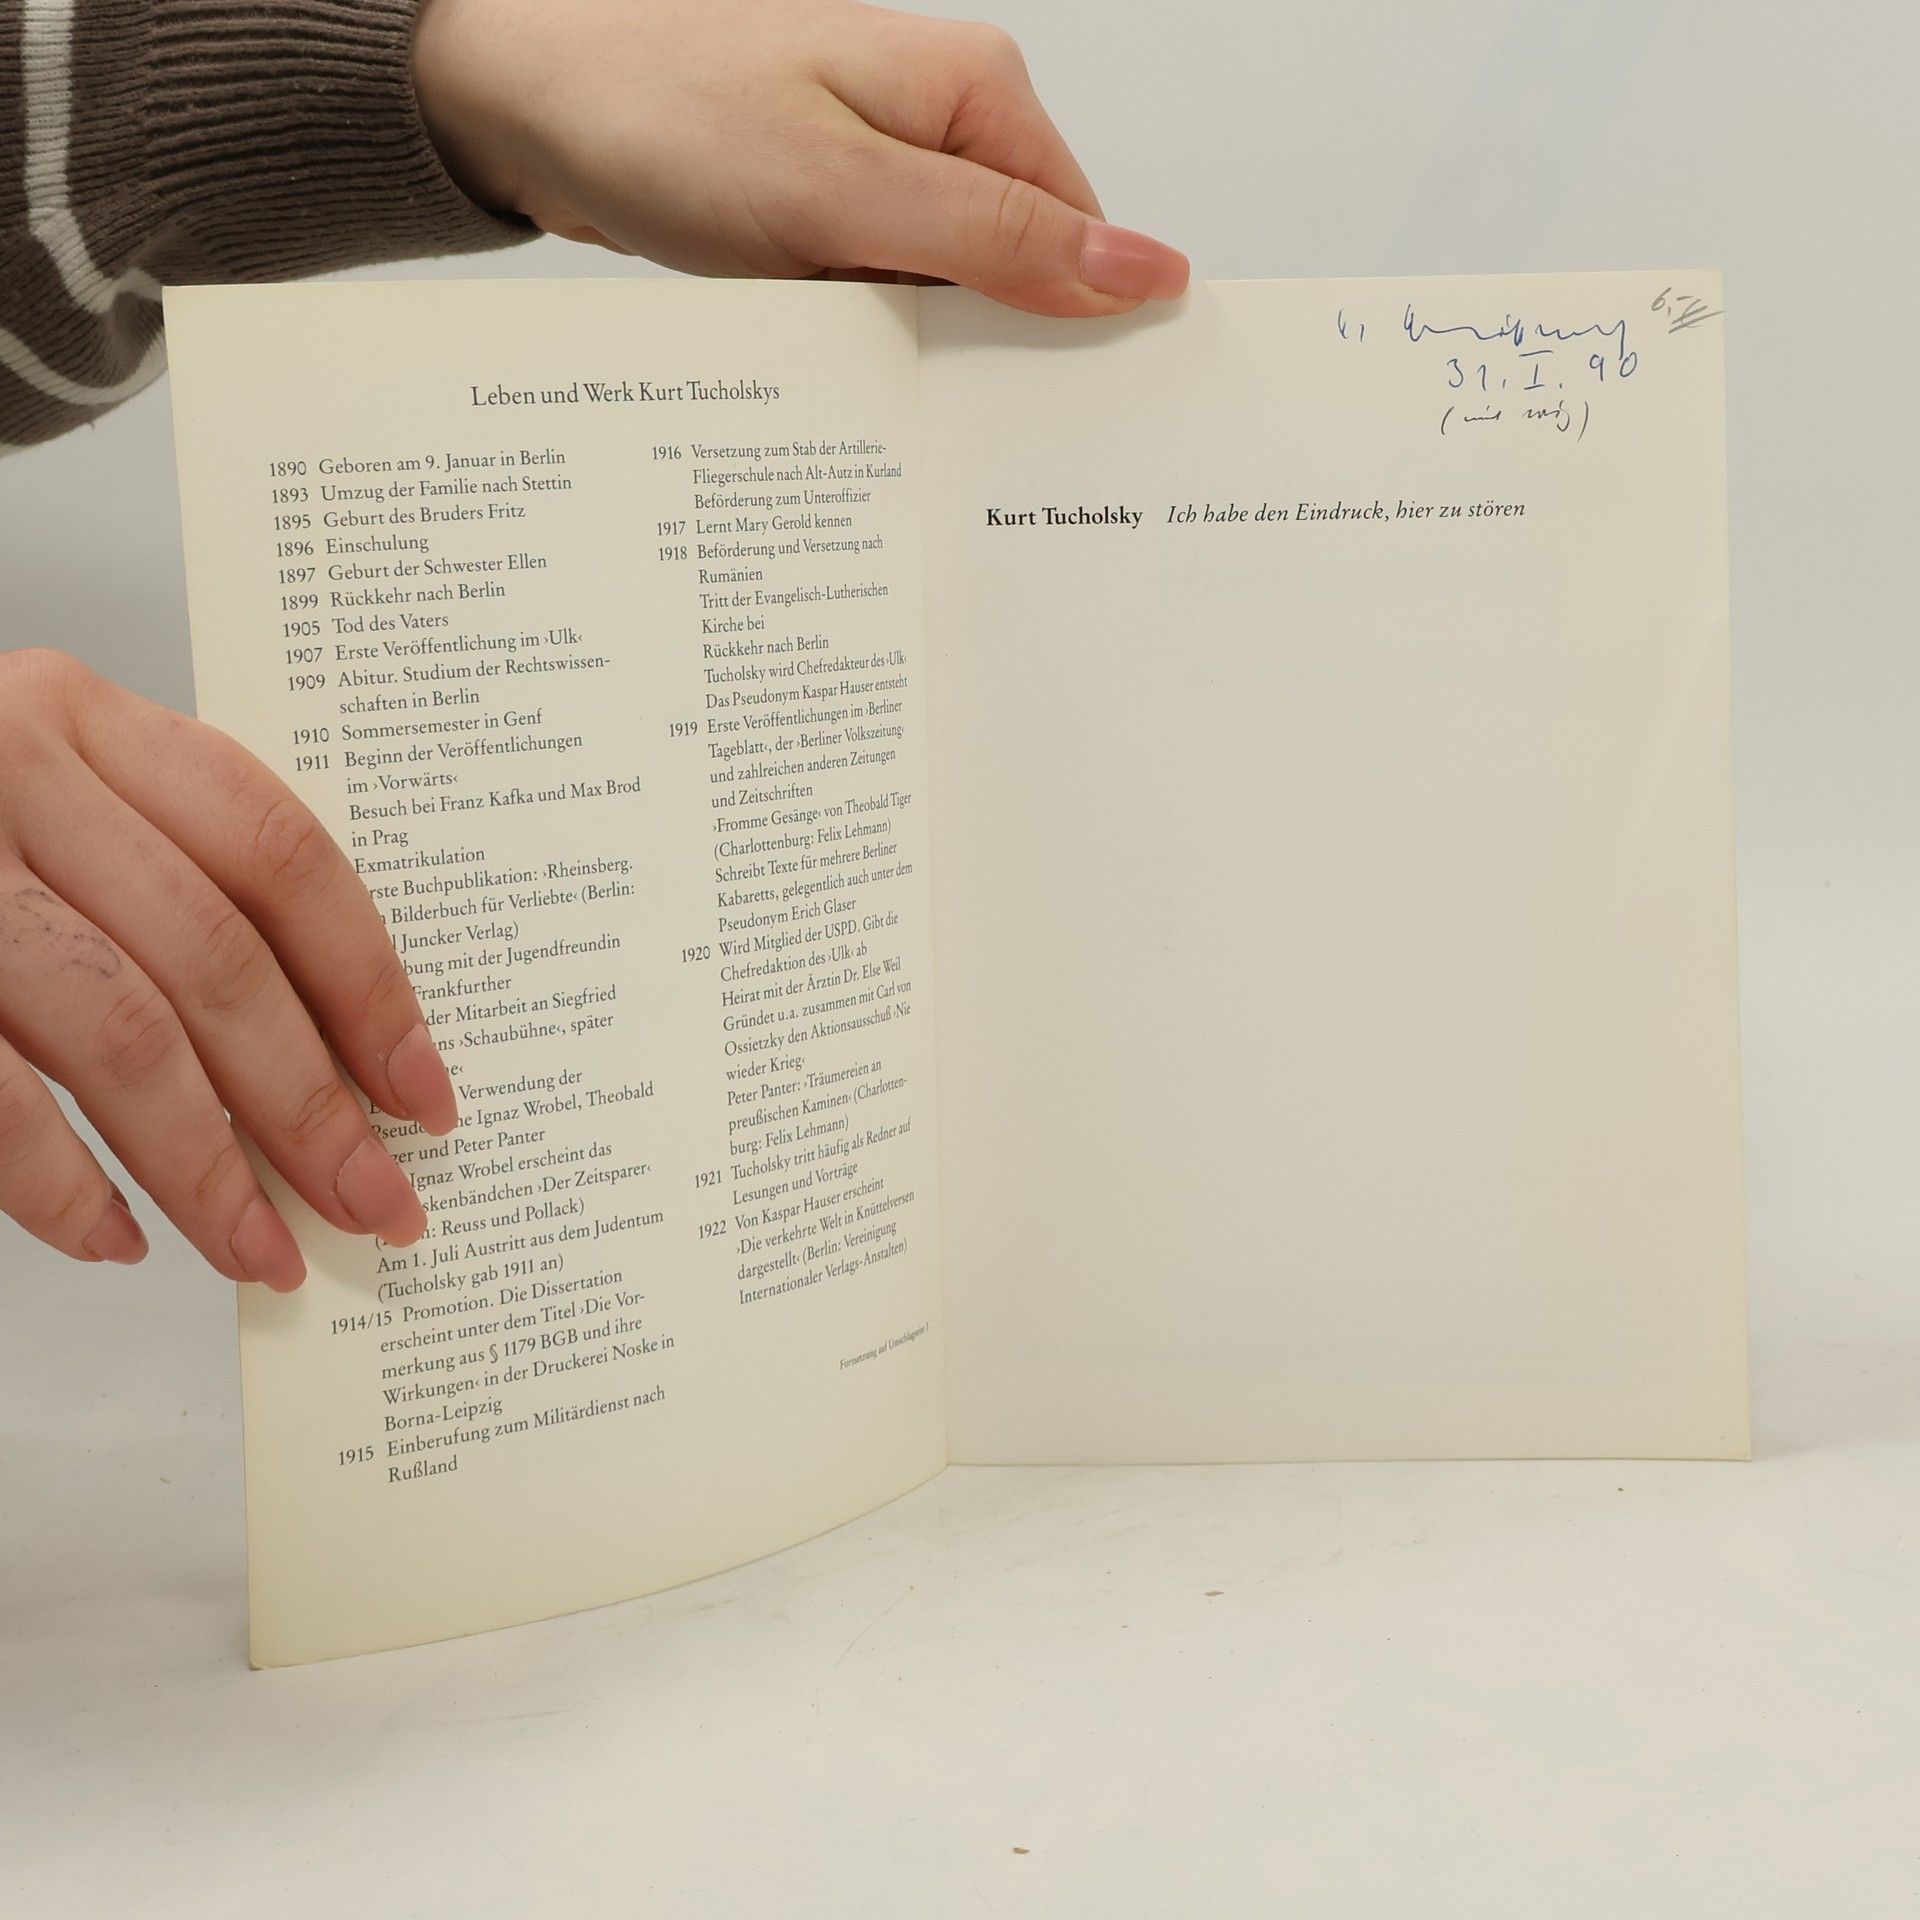 Leben und Werk Kurt Tucholskys
1890 Geboren am 9. Januar in Berlin
1893 Umzug der Familie nach Stettin
1895 Geburt des Bruders Fritz
1896 Einschulung
1897 Geburt der Schwester Ellen
1899 Rückkehr nach Berlin
1905 Tod des Vaters
1907 Erste Veröffentlichung im ›Ulk‹
1909 Abitur. Studium der Rechtswissen-
schaften in Berlin
1910 Sommersemester in Genf
1911 Beginn der Veröffentlichungen
im ›Vorwärts‹
Besuch bei Franz Kafka und Max Brod
in Prag
Exmatrikulation
Buchpublikation: ›Rheinsberg.
Bilderbuch für Verliebte‹ (Berlin:
Juncker Verlag)
mit der Jugendfreundin
Frankfurther
der Mitarbeit an Siegfried
›Schaubühne‹, später
Verwendung der
Ignaz Wrobel, Theobald
und Peter Panter
Ignaz Wrobel erscheint das
›Der Zeitsparer‹
Reuss und Pollack)
Am 1. Juli Austritt aus dem Judentum
(Tucholsky gab 1911 an)
1914/15 Promotion. Die Dissertation
erscheint unter dem Titel ›Die Vor-
merkung aus § 1179 BGB und ihre
Wirkungen‹ in der Druckerei Noske in
Borna-Leipzig
1915 Einberufung zum Militärdienst nach
Rußland
1916 Versetzung zum Stab der Artillerie-
Fliegerschule nach Alt-Autz in Kurland
Beförderung zum Unteroffizier
1917 Lernt Mary Gerold kennen
1918 Beförderung und Versetzung nach
Rumänien
Tritt der Evangelisch-Lutherischen
Kirche bei
Rückkehr nach Berlin
Tucholsky wird Chefredakteur des ›Ulk‹
Das Pseudonym Kaspar Hauser entsteht
1919 Erste Veröffentlichungen im ›Berliner
Tageblatt‹, der ›Berliner Volkszeitung‹
und zahlreichen anderen Zeitungen
und Zeitschriften
›Fromme Gesänge‹ von Theobald Tiger
(Charlottenburg: Felix Lehmann)
Schreibt Texte für mehrere Berliner
Kabaretts, gelegentlich auch unter dem
Pseudonym Erich Glaser
1920 Wird Mitglied der USPD. Gibt die
Chefredaktion des ›Ulk‹ ab
Heirat mit der Ärztin Dr. Else Weil
Gründet u.a. zusammen mit Carl von
Ossietzky den Aktionsausschuß ›Nie
wieder Krieg‹
Peter Panter: ›Träumereien an
preußischen Kaminen‹ (Charlotten-
burg: Felix Lehmann)
1921 Tucholsky tritt häufig als Redner auf
Lesungen und Vorträge
1922 Von Kaspar Hauser erscheint
›Die verkehrte Welt in Knüttelversen
dargestellt‹ (Berlin: Vereinigung
Internationaler Verlags-Anstalten)
Fortsetzung auf Umschlagseite 3
6,-
31. I. 90
Kurt Tucholsky Ich habe den Eindruck, hier zu stören